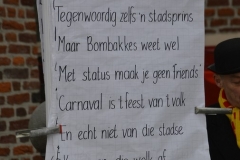 Tegenwoordig zelfs 'n stadsprins
Maar Bombakkes weet wel
'Met status maak je geen friends'
Carnaval is 't feest van 't volk
En echt niet van die stadse